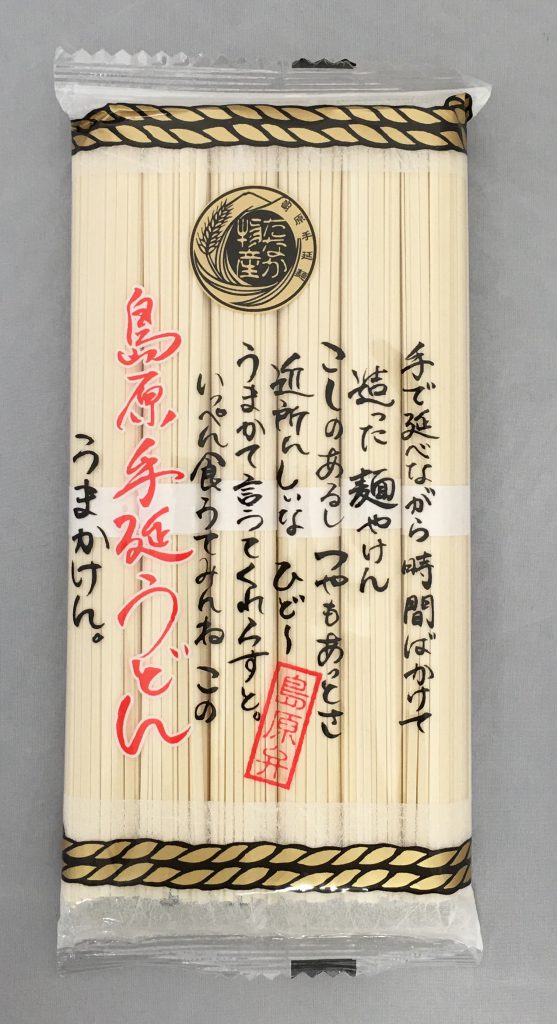 島原手延麺
たなか物産
手で延べながら時間ばかけて
造った麺やけん
こしのあるし つやもあっとさ
近所んしいな ひど〜
うまかて言うてくれらすと。
いっぺん食うてみんね この
島原手延うどん
うまかけん。
島原弁